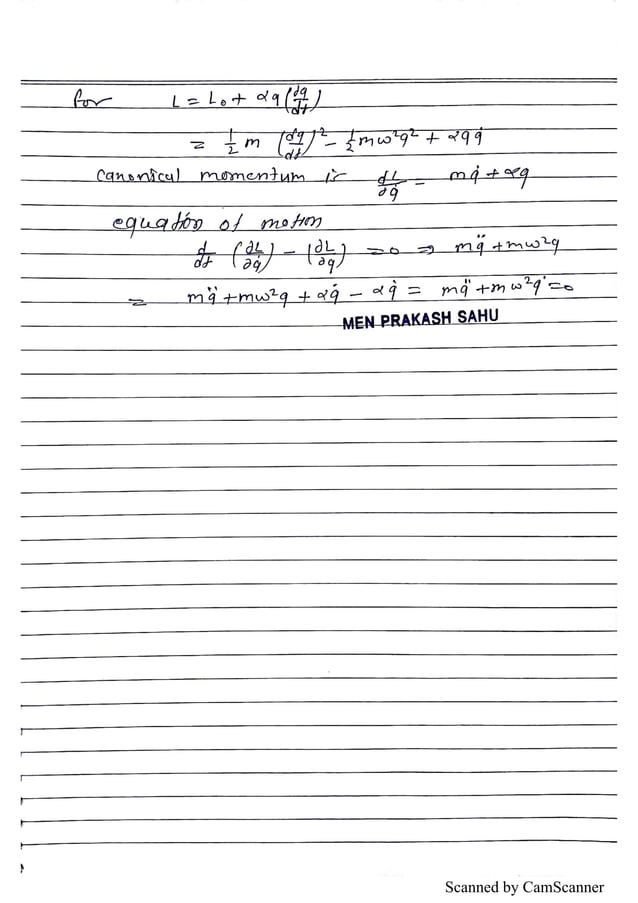 for L = L₀ + αq(dq/dt)
= 1/2 m (dq/dt)² - 1/2 mω²q² + αqq̇
Canonical momentum is ∂L/∂q̇ = mq̇ + αq
equation of motion
d/dt (∂L/∂q̇) - (∂L/∂q) = 0 ⇒ mq̈ + mω²q
= mq̈ + mω²q + αq̇ - αq̇ = mq̈ + mω²q = 0
MEN PRAKASH SAHU
Scanned by CamScanner